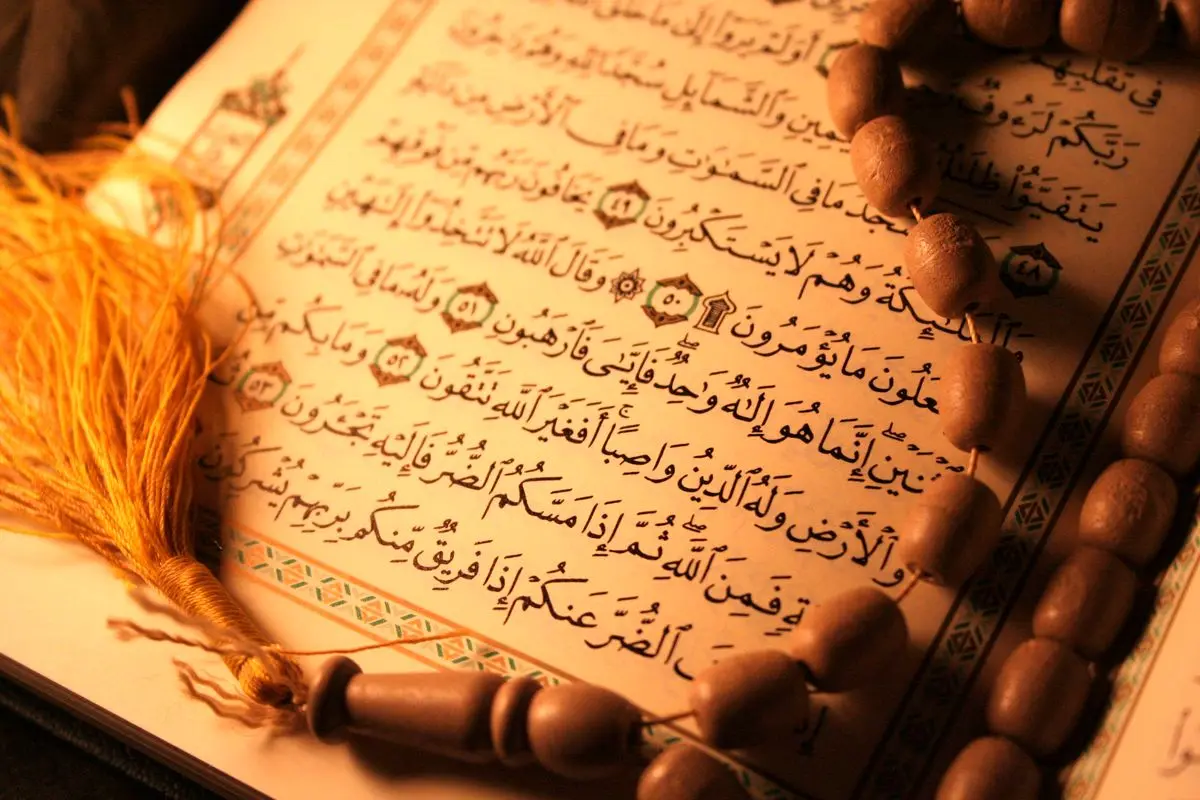 فِى تَقَلُّبِهِمْ
رَبَّكُمْ أَوَلَمْ يَرَوْا۟ إِلَىٰ مَا خَلَقَ
يَتَفَيَّؤُا۟ ظِلَـٰلُهُۥ وَٱلشَّمَآئِلِ سُجَّدًا لِّلَّهِ وَهُمْ دَٰخِرُونَ
٤٨ مَا فِى ٱلسَّمَـٰوَٰتِ وَمَا فِى ٱلْأَرْضِ مِن دَآبَّةٍ
وَٱلْمَلَـٰٓئِكَةُ وَهُمْ لَا يَسْتَكْبِرُونَ ٤٩ يَخَافُونَ رَبَّهُم مِّن فَوْقِهِمْ
مَا يُؤْمَرُونَ ۩ ٥٠ ۞ وَقَالَ ٱللَّهُ لَا تَتَّخِذُوٓا۟ إِلَـٰهَيْنِ
ٱثْنَيْنِ ۖ إِنَّمَا هُوَ إِلَـٰهٌ وَٰحِدٌ ۖ فَإِيَّـٰىَ فَٱرْهَبُونِ ٥١ وَلَهُۥ مَا فِى ٱلسَّمَـٰوَٰتِ
وَٱلْأَرْضِ وَلَهُ ٱلدِّينُ وَاصِبًا ۚ أَفَغَيْرَ ٱللَّهِ تَتَّقُونَ ٥٢ وَمَا بِكُم مِّن
فَمِنَ ٱللَّهِ ۖ ثُمَّ إِذَا مَسَّكُمُ ٱلضُّرُّ فَإِلَيْهِ تَجْـَٔرُونَ ٥٣
ٱلضُّرَّ عَنكُمْ إِذَا فَرِيقٌ مِّنكُم بِرَبِّهِمْ يُشْرِكُونَ